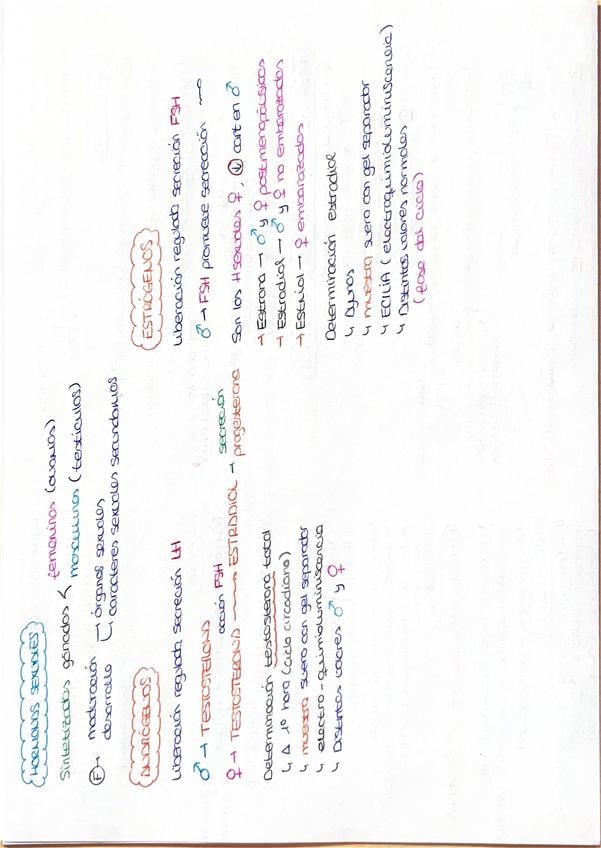 HORMONAS SEXUALES
Sintetizadas gónadas < femeninos (ovarios)
masculinos (testículos)
(F) → maduración órganos sexuales
desarrollo caracteres sexuales secundarios
ANDRÓGENOS
Liberación regulada secreción LH
♂ → TESTOSTERONA
acción FSH
♀ → TESTOSTERONA → ESTRADIOL → secreción progesterona
Determinación testosterona total
↳ Δ 1ª hora (ciclo circadiano)
↳ muestra suero con gel separador
↳ electro-quimioluminiscencia
↳ Distintos valores ♂ y ♀
ESTRÓGENOS
Liberación regulada secreción FSH
♂ → FSH promueve secreción
Son las H sexuales ♀, (↓) cant en ♂
→ Estrona → ♂ y ♀ postmenopáusicas
→ Estradiol → ♂ y ♀ no embarazadas
→ Estriol → ♀ embarazadas
Determinación estradiol
↳ Ayunas
↳ muestra suero con gel separador
↳ ECLIA (electroquimioluminiscencia)
↳ Distintos valores normales
(fase del ciclo)